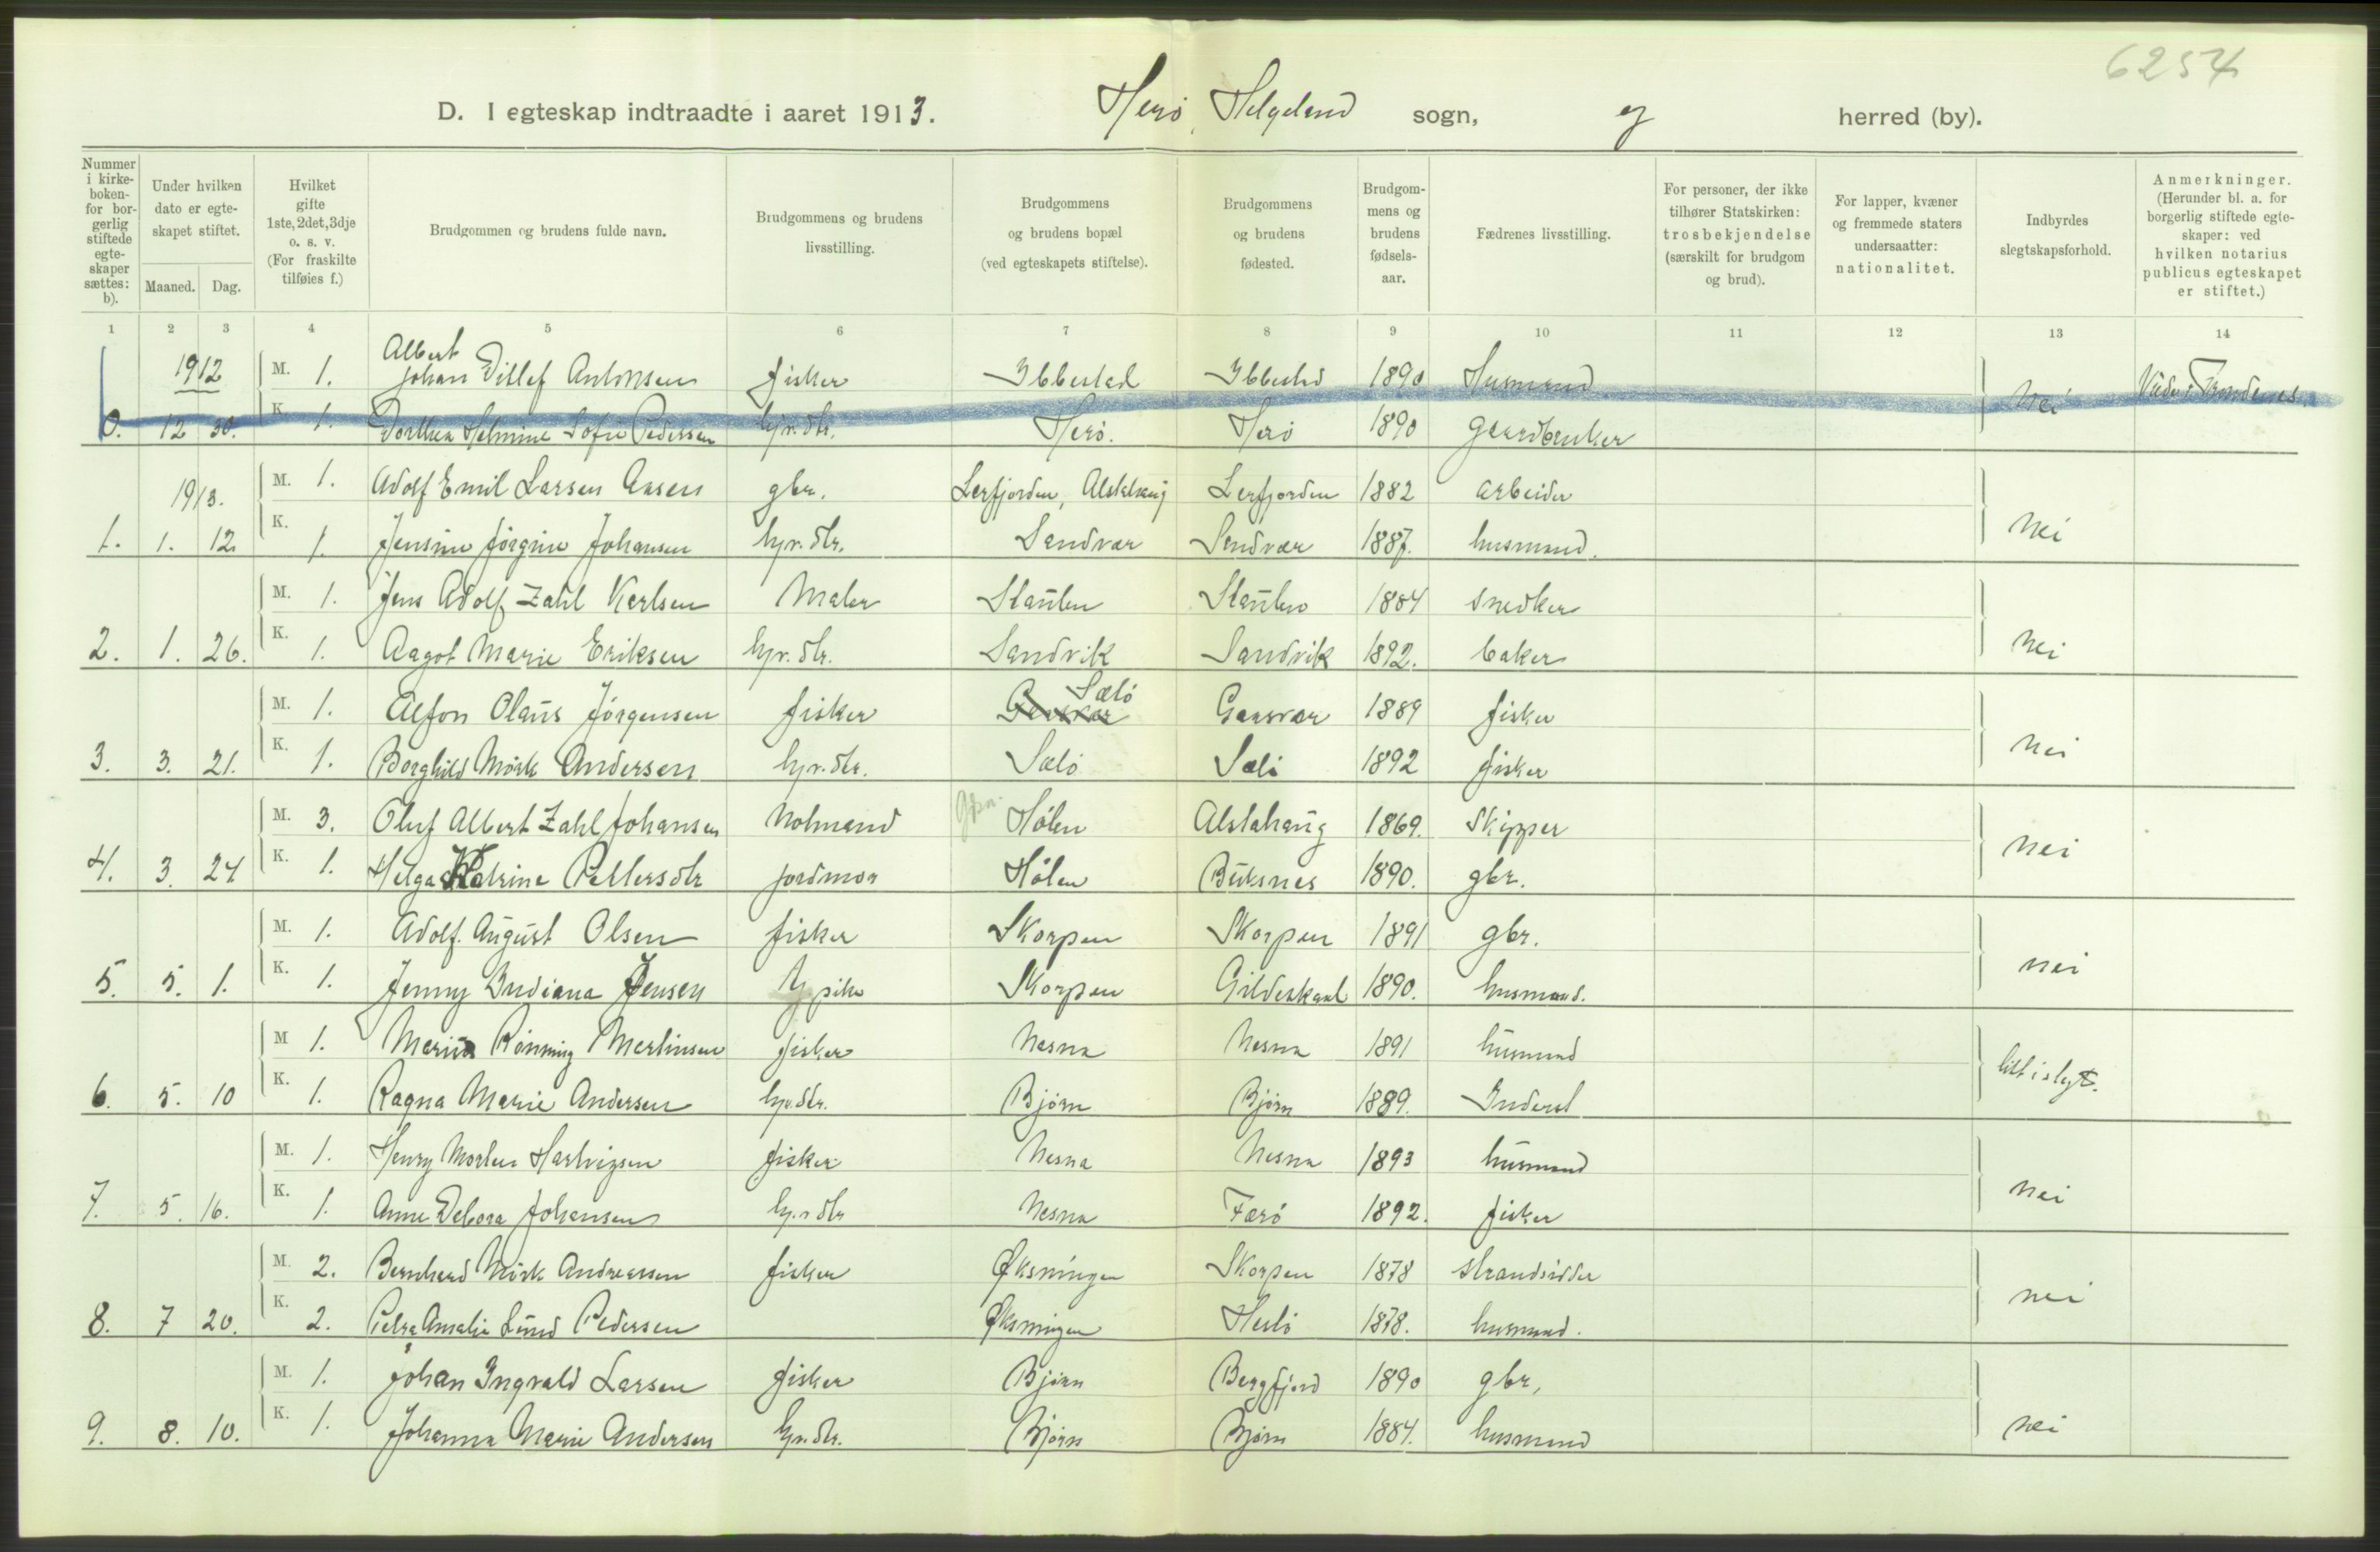 6254
D. I egteskap indtraadte i aaret 1913. Herø, Helgeland sogn, og herred (by).
Nummer i kirke-boken- for bor-gerlig stiftede egte-skaper sættes: b).
Under hvilken dato er egte-skapet stiftet.
Maaned. Dag.
Hvilket gifte 1ste, 2det, 3dje o. s. v. (For fraskilte tilføies f.)
Brudgommen og brudens fulde navn.
Brudgommens og brudens livsstilling.
Brudgommens og brudens bopæl (ved egteskapets stiftelse).
Brudgommens og brudens fødested.
Brudgom-mens og brudens fødsels-aar.
Fædrenes livsstilling.
For personer, der ikke tilhører Statskirken: trosbekjendelse (særskilt for brudgom og brud).
For lapper, kvæner og fremmede staters undersaatter: nationalitet.
Indbyrdes slegtskapsforhold.
Anmerkninger. (Herunder bl. a. for borgerlig stiftede egte-skaper: ved hvilken notarius publicus egteskapet er stiftet.)
1 2 3 4 5 6 7 8 9 10 11 12 13 14
Albert
1912 M. 1. Johan Ditlef Antonsen fisker Ibbestad Ibbestad 1890 Husmand
0. 12 30. K. 1. Dorthea Helmine Sofie Pedersen hjv. dtr. Herø. Herø 1890 Gaardbruker nei
1913. M. 1. Adolf Emil Larsen Aasen gbr. Lerfjorden, Alstahaug Lerfjorden 1882 arbeider
1. 1. 12. K. 1. Jensine Jørgine Johansen hjv. dtr. Sandvær Sandvær 1887. husmand. nei
M. 1. Jens Adolf Zahl Karlsen Maler Staulen Staulen 1884 snedker
2. 1. 26. K. 1. Aagot Marie Eriksen hjv. dtr. Sandvik Sandvik 1892. baker nei
M. 1. Alfon Olaus Jørgensen fisker Gaasvær Sælø Gaasvær 1889 fisker
3. 3. 21. K. 1. Borghild Mørk Andersen hjv. dtr. Sælø Sælø 1892 fisker nei
M. 3. Oluf Albert Zahl Johansen Notmand Hølen Alstahaug 1869. Skipper
4. 3. 24 K. 1. Helga Katrine Pettersdtr jordmor Hølen Buksnes 1890. gbr. nei
M. 1. Adolf August Olsen fisker Skorpen Skorpen 1891 gbr.
5. 5. 1. K. 1. Jenny Indiana Jensen pike Skorpen Gildeskaal 1890. husmand. nei
M 1. Marius Rønning Martinsen fisker Nesna Nesna 1891 husmand
6. 5. 10 K. 1. Ragna Marie Andersen hjv. dtr. Bjørn Bjørn 1889. Inderst litt i slegt.
M. 1. Henry Morten Hartvigsen fisker Nesna Nesna 1893 husmand
7. 5. 16. K. 1. Anne Debora Johansen hjv. dtr Nesna Færø 1892. fisker nei
M. 2. Bernhard Mørk Andreassen fisker Øksningen Skorpen 1878 strandsidder
8. 7 20. K. 2. Petra Amalie Lund Pedersen Øksningen Hestø 1878. husmand. nei
M. 1. Johan Ingvald Larsen fisker Bjørn Bergfjord 1890 gbr.
9. 8. 10. K. 1. Johanna Marie Andersen hjv. dtr. Bjørn Bjørn 1884. husmand nei